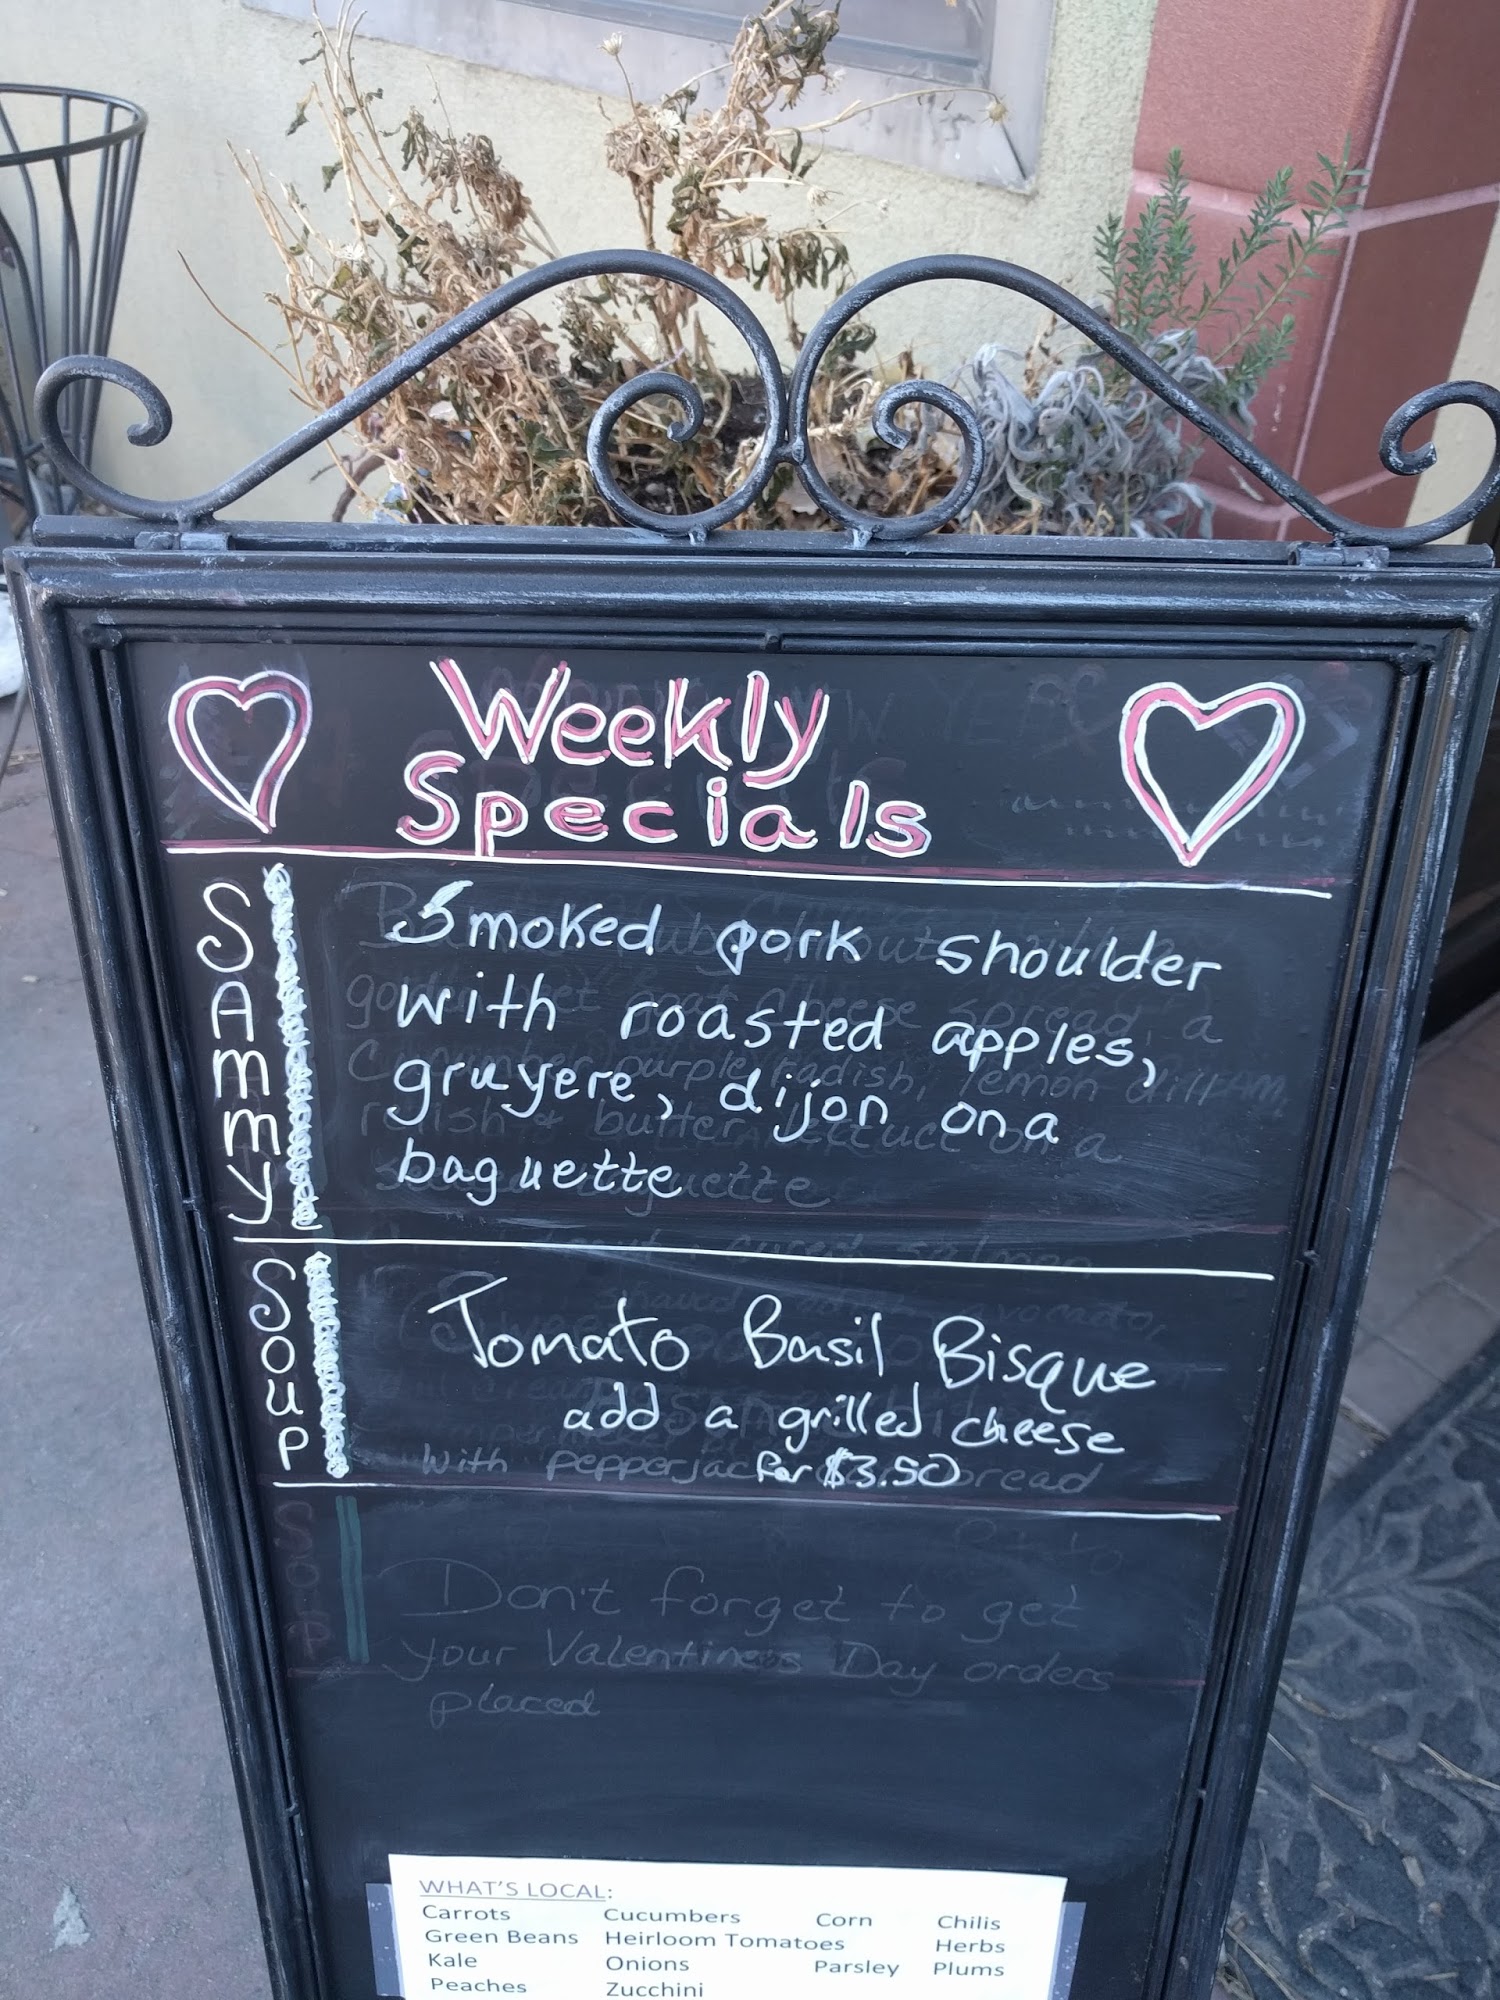 Weekly
Specials
SAMMY
Smoked pork shoulder
with roasted apples,
gruyere, dijon on a
baguette
SOUP
Tomato Basil Bisque
add a grilled cheese
for $3.50
Don't forget to get
your Valentines Day orders
placed
WHAT'S LOCAL:
Carrots Cucumbers Corn Chilis
Green Beans Heirloom Tomatoes Herbs
Kale Onions Parsley Plums
Peaches Zucchini